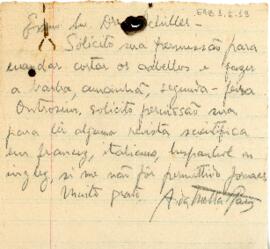 Exmo Snr. Dr. Schüller -
Solicito sua permissão para
mandar cortar os cabellos e fazer
a barba, amanhã, segunda-feira
Outrosim, solicito permissão sua
para lêr alguma revista scientifica
em francez, italiano, hespanhol ou
inglez, si me não fôr permittido jornaes
Muito grato